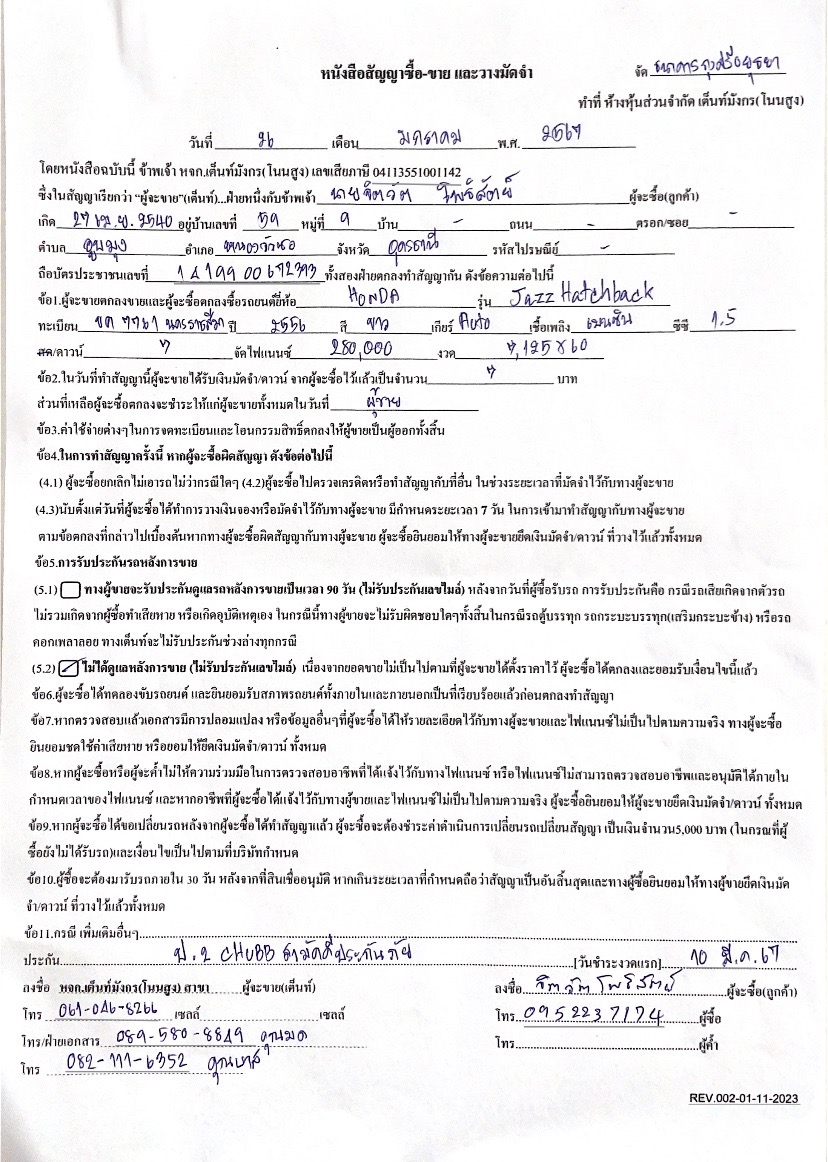 หนังสือสัญญาซื้อ-ขาย และวางมัดจำ
จัด ธนาคารกรุงศรีอยุธยา
ทำที่ ห้างหุ้นส่วนจำกัด เต็นท์มังกร(โนนสูง)
วันที่ 26 เดือน มกราคม พ.ศ. 2567
โดยหนังสือฉบับนี้ ข้าพเจ้า หจก.เต็นท์มังกร(โนนสูง) เลขเสียภาษี 04113551001142
ซึ่งในสัญญาเรียกว่า "ผู้จะขาย"(เต็นท์)...ฝ่ายหนึ่งกับข้าพเจ้า นายจิตวัต โพธิ์สัตย์ ผู้จะซื้อ(ลูกค้า)
เกิด 27 เม.ย. 2540 อยู่บ้านเลขที่ 59 หมู่ที่ 9 บ้าน - ถนน - ตรอก/ซอย -
ตำบล อูบมุง อำเภอ หนองวัวซอ จังหวัด อุดรธานี รหัสไปรษณีย์ -
ถือบัตรประชาชนเลขที่ 1419900672393 ทั้งสองฝ่ายตกลงทำสัญญากัน ดังข้อความต่อไปนี้
ข้อ1.ผู้จะขายตกลงขายและผู้จะซื้อตกลงซื้อรถยนต์ยี่ห้อ HONDA รุ่น Jazz Hatchback
ทะเบียน ขต 7761 นครราชสีมา ปี 2556 สี ขาว เกียร์ Auto เชื้อเพลิง เบนซิน ซีซี 1.5
สด/ดาวน์ จัดไฟแนนซ์ 280,000 งวด 7,125 x 60
ข้อ2.ในวันที่ทำสัญญานี้ผู้จะขายได้รับเงินมัดจำ/ดาวน์ จากผู้จะซื้อไว้แล้วเป็นจำนวน บาท
ส่วนที่เหลือผู้จะซื้อตกลงจะชำระให้แก่ผู้จะขายทั้งหมดในวันที่
ข้อ3.ค่าใช้จ่ายต่างๆในการจดทะเบียนและโอนกรรมสิทธิ์ตกลงให้ผู้ขายเป็นผู้ออกทั้งสิ้น ผู้ขาย
ข้อ4.ในการทำสัญญาครั้งนี้ หากผู้จะซื้อผิดสัญญา ดังข้อต่อไปนี้
(4.1) ผู้จะซื้อยกเลิกไม่เอารถไม่ว่ากรณีใดๆ (4.2)ผู้จะซื้อไปตรวจเครดิตหรือทำสัญญากับที่อื่น ในช่วงระยะเวลาที่มัดจำไว้กับทางผู้จะขาย
(4.3)นับตั้งแต่วันที่ผู้จะซื้อได้ทำการวางเงินจองหรือมัดจำไว้กับทางผู้จะขาย มีกำหนดระยะเวลา 7 วัน ในการเข้ามาทำสัญญากับทางผู้จะขาย
ตามข้อตกลงที่กล่าวไปเบื้องต้นหากทางผู้จะซื้อผิดสัญญากับทางผู้จะขาย ผู้จะซื้อยินยอมให้ทางผู้จะขายยึดเงินมัดจำ/ดาวน์ ที่วางไว้แล้วทั้งหมด
ข้อ5.การรับประกันรถหลังการขาย
(5.1) ทางผู้ขายจะรับประกันดูแลรถหลังการขายเป็นเวลา 90 วัน (ไม่รับประกันเลขไมล์) หลังจากวันที่ผู้ซื้อรับรถ การรับประกันคือ กรณีรถเสียเกิดจากตัวรถ
ไม่รวมเกิดจากผู้ซื้อทำเสียหาย หรือเกิดอุบัติเหตุเอง ในกรณีนี้ทางผู้ขายจะไม่รับผิดชอบใดๆทั้งสิ้นในกรณีรถตู้บรรทุก รถกระบะบรรทุก(เสริมกระบะข้าง) หรือรถ
คอกเพลาลอย ทางเต็นท์จะไม่รับประกันช่วงล่างทุกกรณี
(5.2) ไม่ได้ดูแลหลังการขาย (ไม่รับประกันเลขไมล์) เนื่องจากยอดขายไม่เป็นไปตามที่ผู้จะขายได้ตั้งราคาไว้ ผู้จะซื้อได้ตกลงและยอมรับเงื่อนไขนี้แล้ว
ข้อ6.ผู้จะซื้อได้ทดลองขับรถยนต์ และยินยอมรับสภาพรถยนต์ทั้งภายในและภายนอกเป็นที่เรียบร้อยแล้วก่อนตกลงทำสัญญา
ข้อ7.หากตรวจสอบแล้วเอกสารมีการปลอมแปลง หรือข้อมูลอื่นๆที่ผู้จะซื้อได้ให้รายละเอียดไว้กับทางผู้จะขายและไฟแนนซ์ไม่เป็นไปตามความจริง ทางผู้จะซื้อ
ยินยอมชดใช้ค่าเสียหาย หรือยอมให้ยึดเงินมัดจำ/ดาวน์ ทั้งหมด
ข้อ8.หากผู้จะซื้อหรือผู้จะค้ำไม่ให้ความร่วมมือในการตรวจสอบอาชีพที่ได้แจ้งไว้กับทางไฟแนนซ์ หรือไฟแนนซ์ไม่สามารถตรวจสอบอาชีพและอนุมัติได้ภายใน
กำหนดเวลาของไฟแนนซ์ และหากอาชีพที่ผู้จะซื้อได้แจ้งไว้กับทางผู้ขายและ ไฟแนนซ์ไม่เป็นไปตามความจริง ผู้จะซื้อยินยอมให้ผู้จะขายยึดเงินมัดจำ/ดาวน์ ทั้งหมด
ข้อ9.หากผู้จะซื้อได้ขอเปลี่ยนรถหลังจากผู้จะซื้อได้ทำสัญญาแล้ว ผู้จะซื้อจะต้องชำระค่าดำเนินการเปลี่ยนรถเปลี่ยนสัญญา เป็นเงินจำนวน5,000 บาท (ในกรณที่ผู้
ซื้อยังไม่ได้รับรถ)และเงื่อนไขเป็นไปตามที่บริษัทกำหนด
ข้อ10.ผู้ซื้อจะต้องมารับรถภายใน 30 วัน หลังจากที่สินเชื่ออนุมัติ หากเกินระยะเวลาที่กำหนดถือว่าสัญญาเป็นอันสิ้นสุดและทางผู้ซื้อยินยอมให้ทางผู้ขายยึดเงินมัด
จำ/ดาวน์ ที่วางไว้แล้วทั้งหมด
ข้อ11.กรณี เพิ่มเติมอื่นๆ
ประกัน ป.2 CHUBB สามัคคีประกันภัย [วันชำระงวดแรก] 10 มี.ค. 67
ลงชื่อ หจก.เต็นท์มังกร(โนนสูง) สาขา ผู้จะขาย(เต็นท์) ลงชื่อ จิตวัต โพธิ์สัตย์ ผู้จะซื้อ(ลูกค้า)
โทร 061-046-8266 เซลล์ เซลล์ โทร. 0952237174 ผู้ซื้อ
โทร/ฝ่ายเอกสาร 089-580-8849 คุณมด โทร. ผู้ค้ำ
โทร 082-111-6352
REV.002-01-11-2023